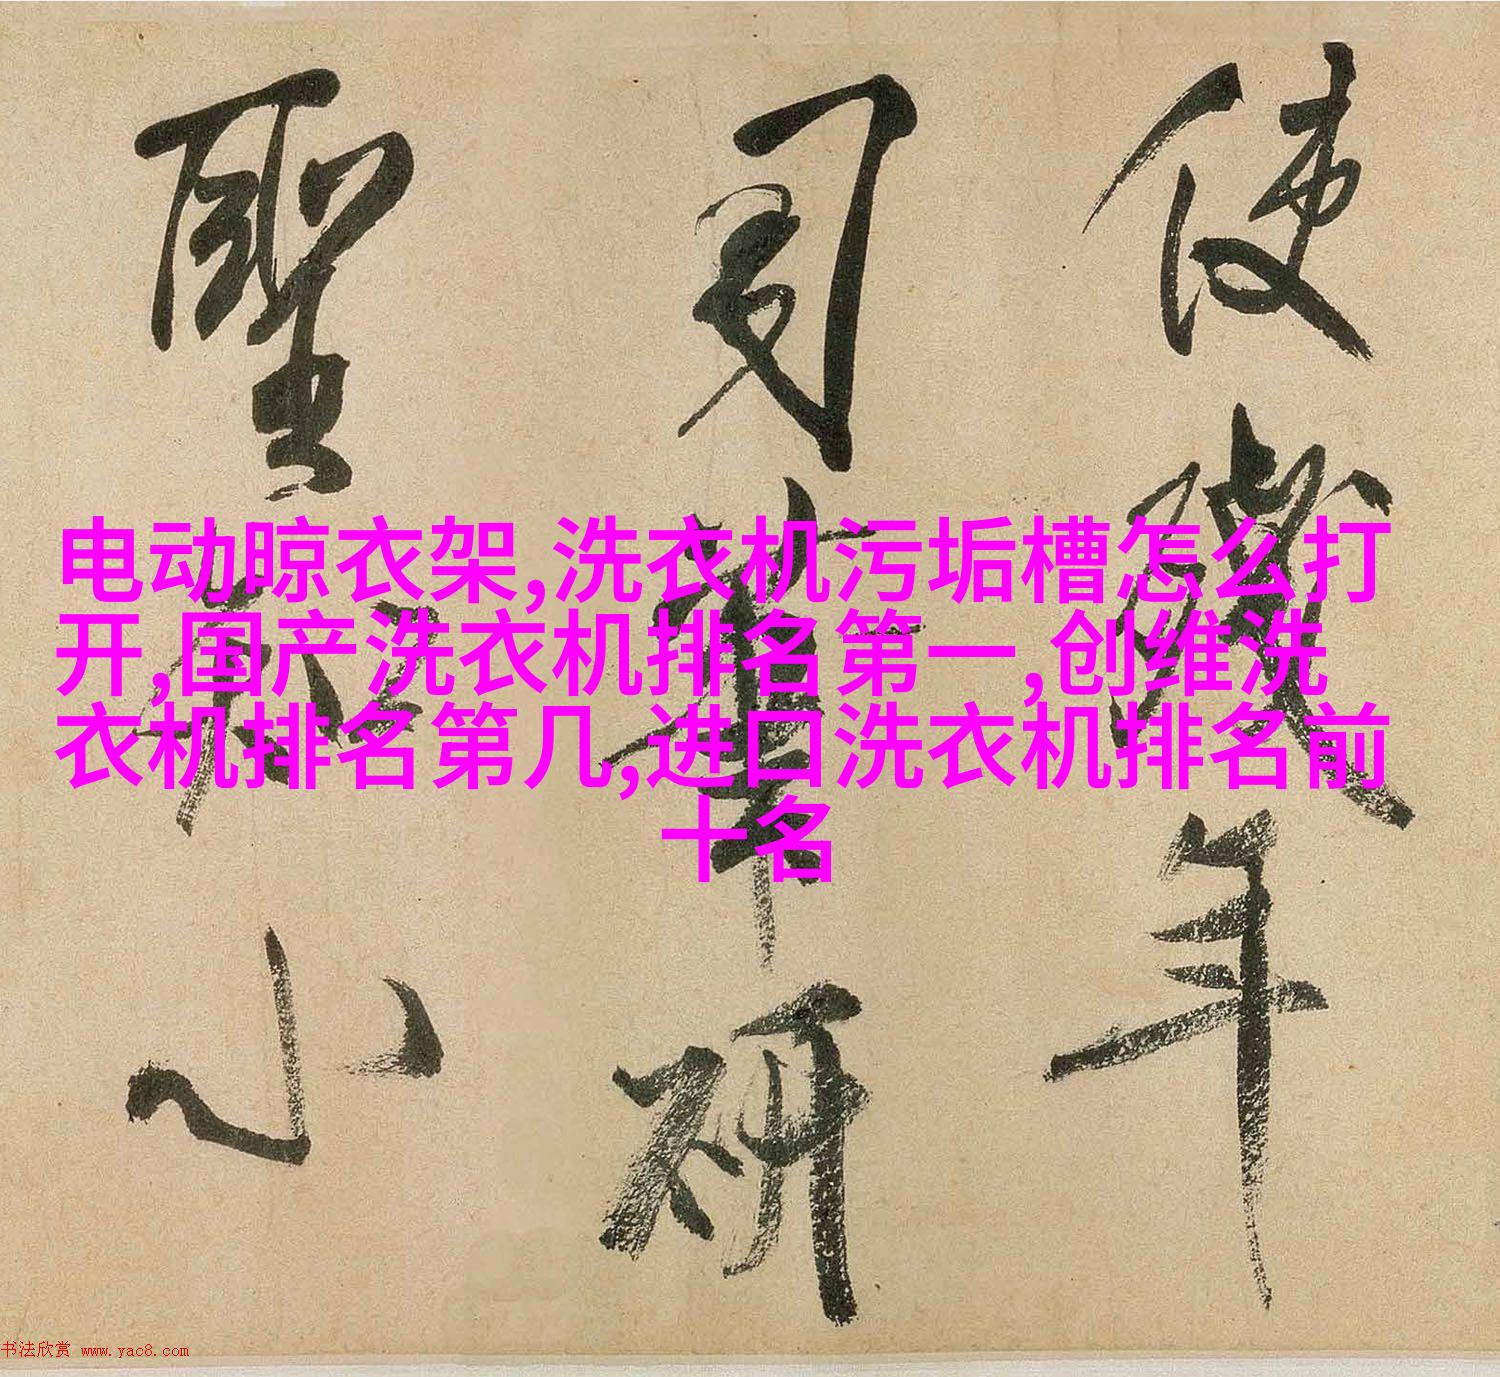 使職年
司筆研
聖知小
电动晾衣架,洗衣机污垢槽怎么打
开,国产洗衣机排名第一,创维洗
衣机排名第几,进口洗衣机排名前
十名
书法欣赏 www.yac8.com